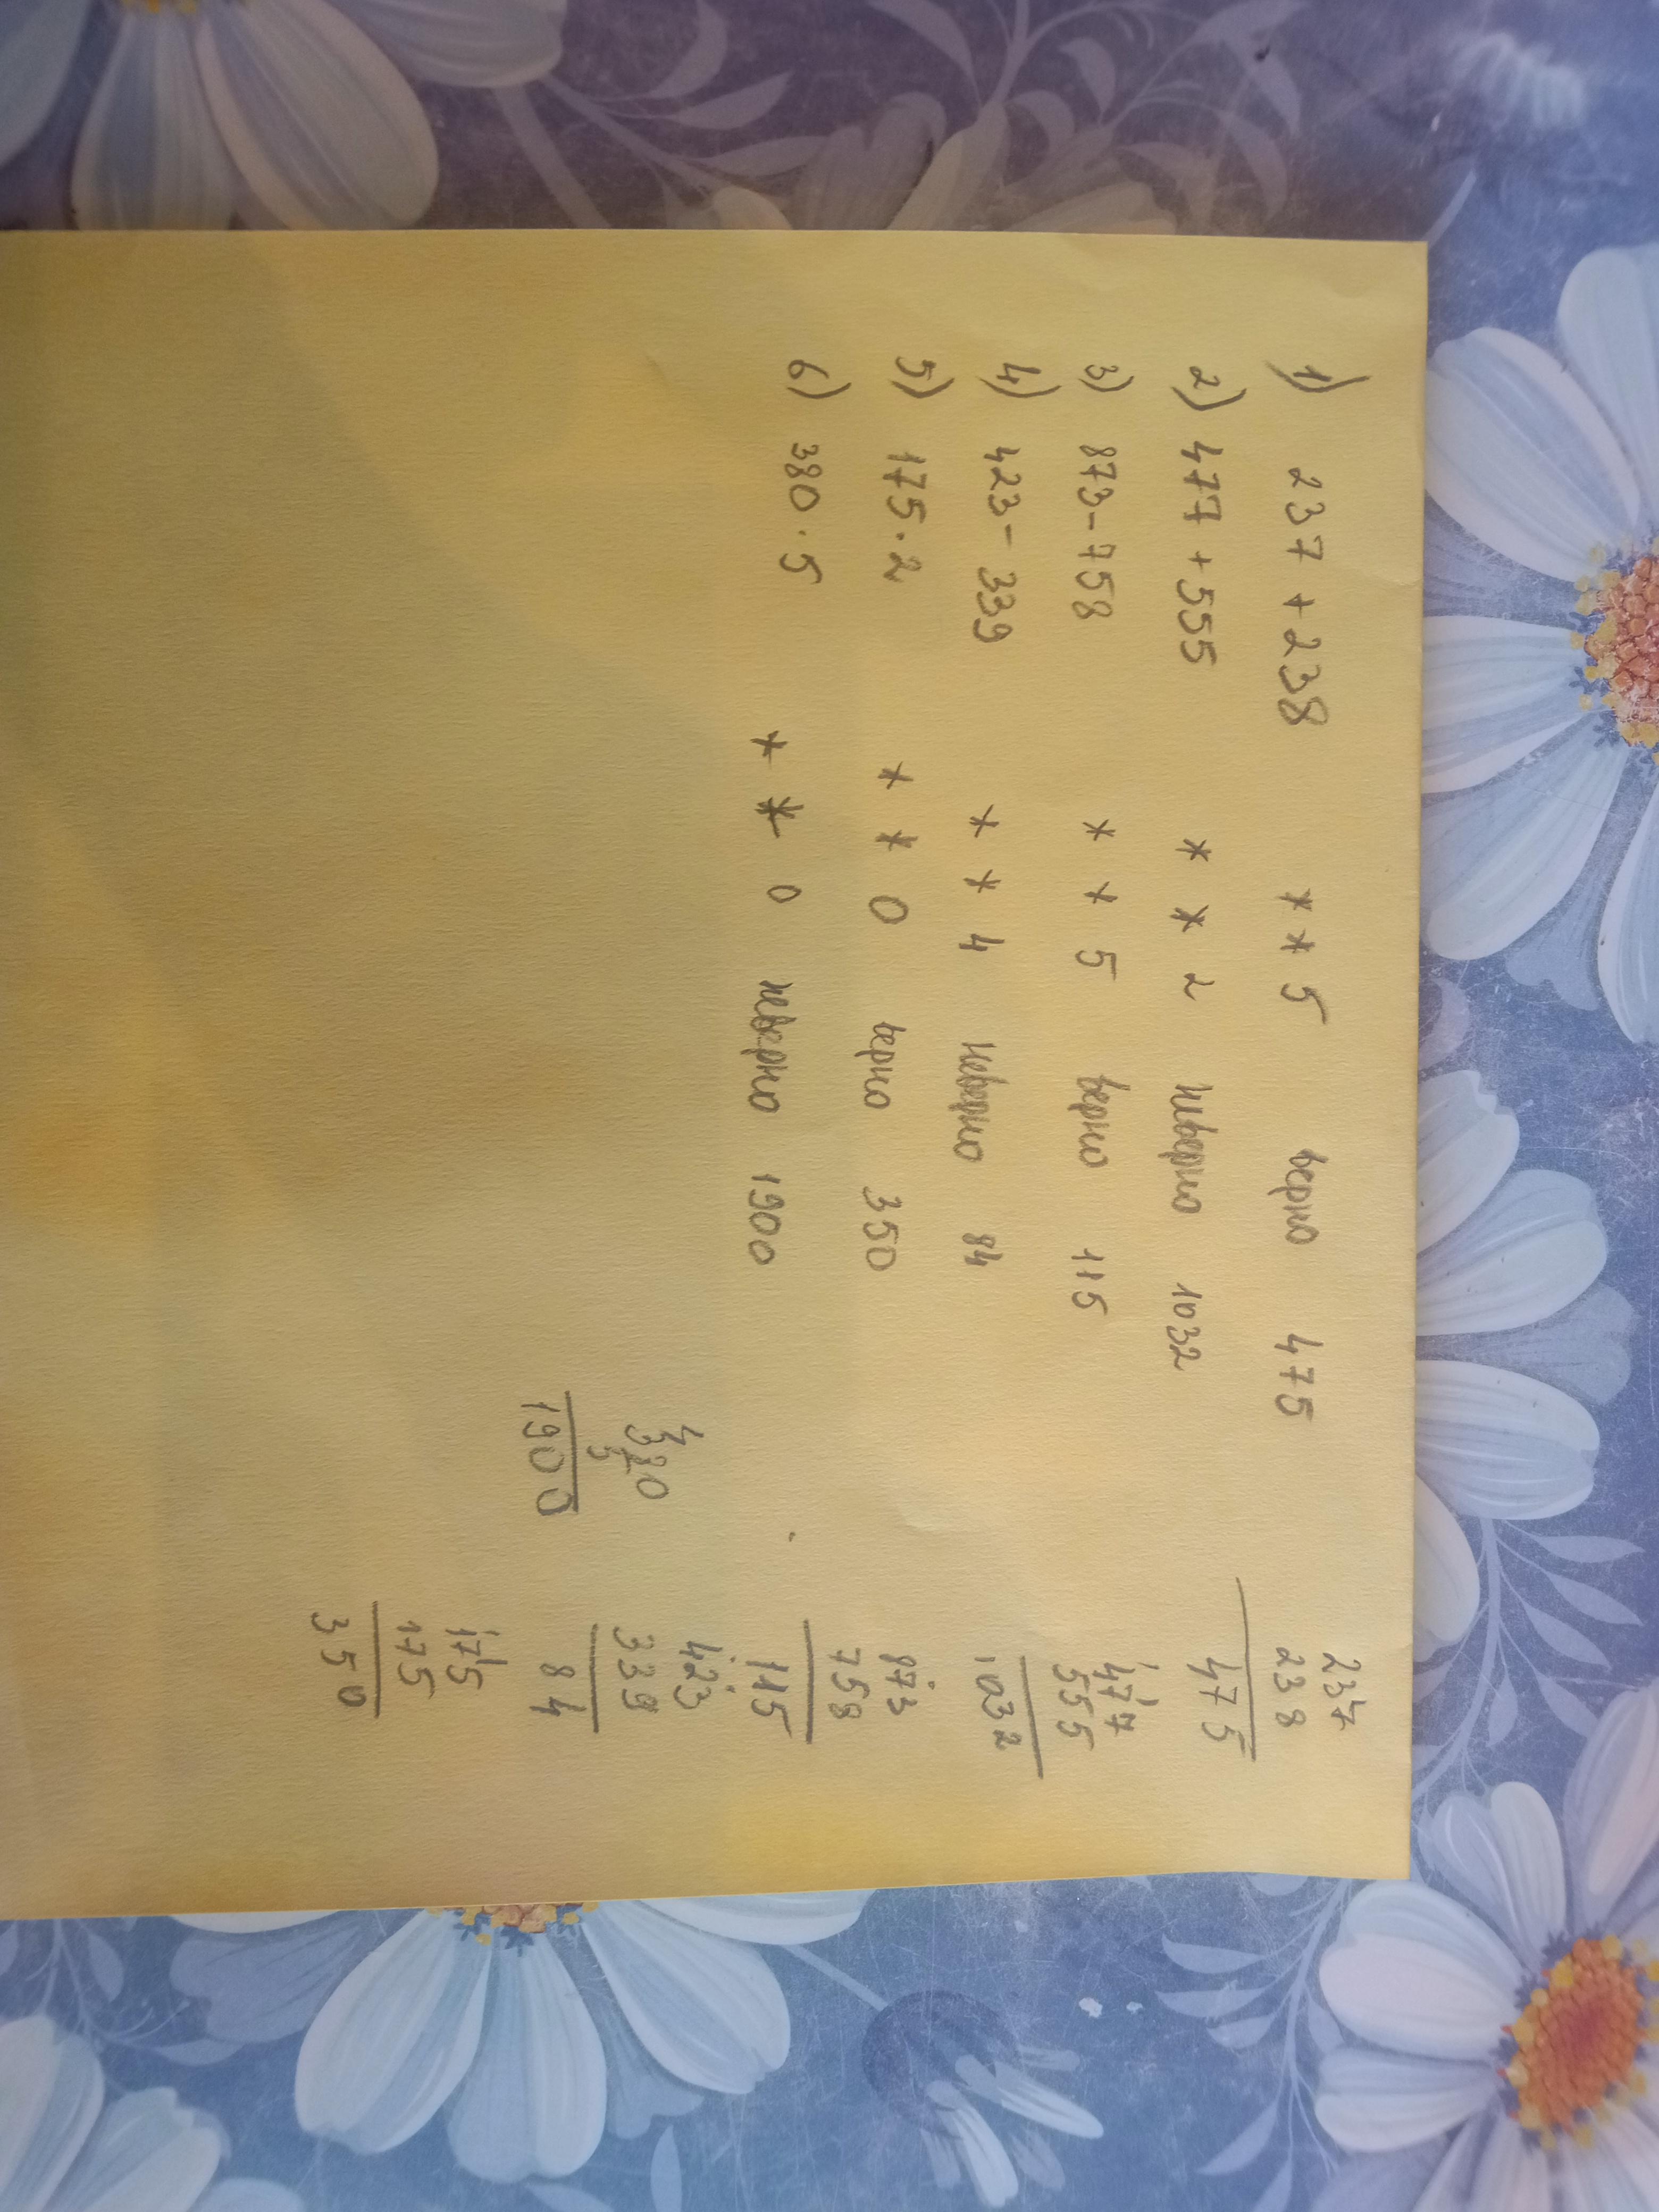 1) 237 + 238 * * 5 верно 475
2) 477 + 555 * * 2 неверно 1032
3) 873 - 758 * * 5 верно 115
4) 423 - 339 * * 4 неверно 84
5) 175 · 2 * * 0 верно 350
6) 380 · 5 * * 0 неверно 1900
237
238
475
477
555
1032
873
758
115
423
339
84
175
175
350
4
380
5
1900